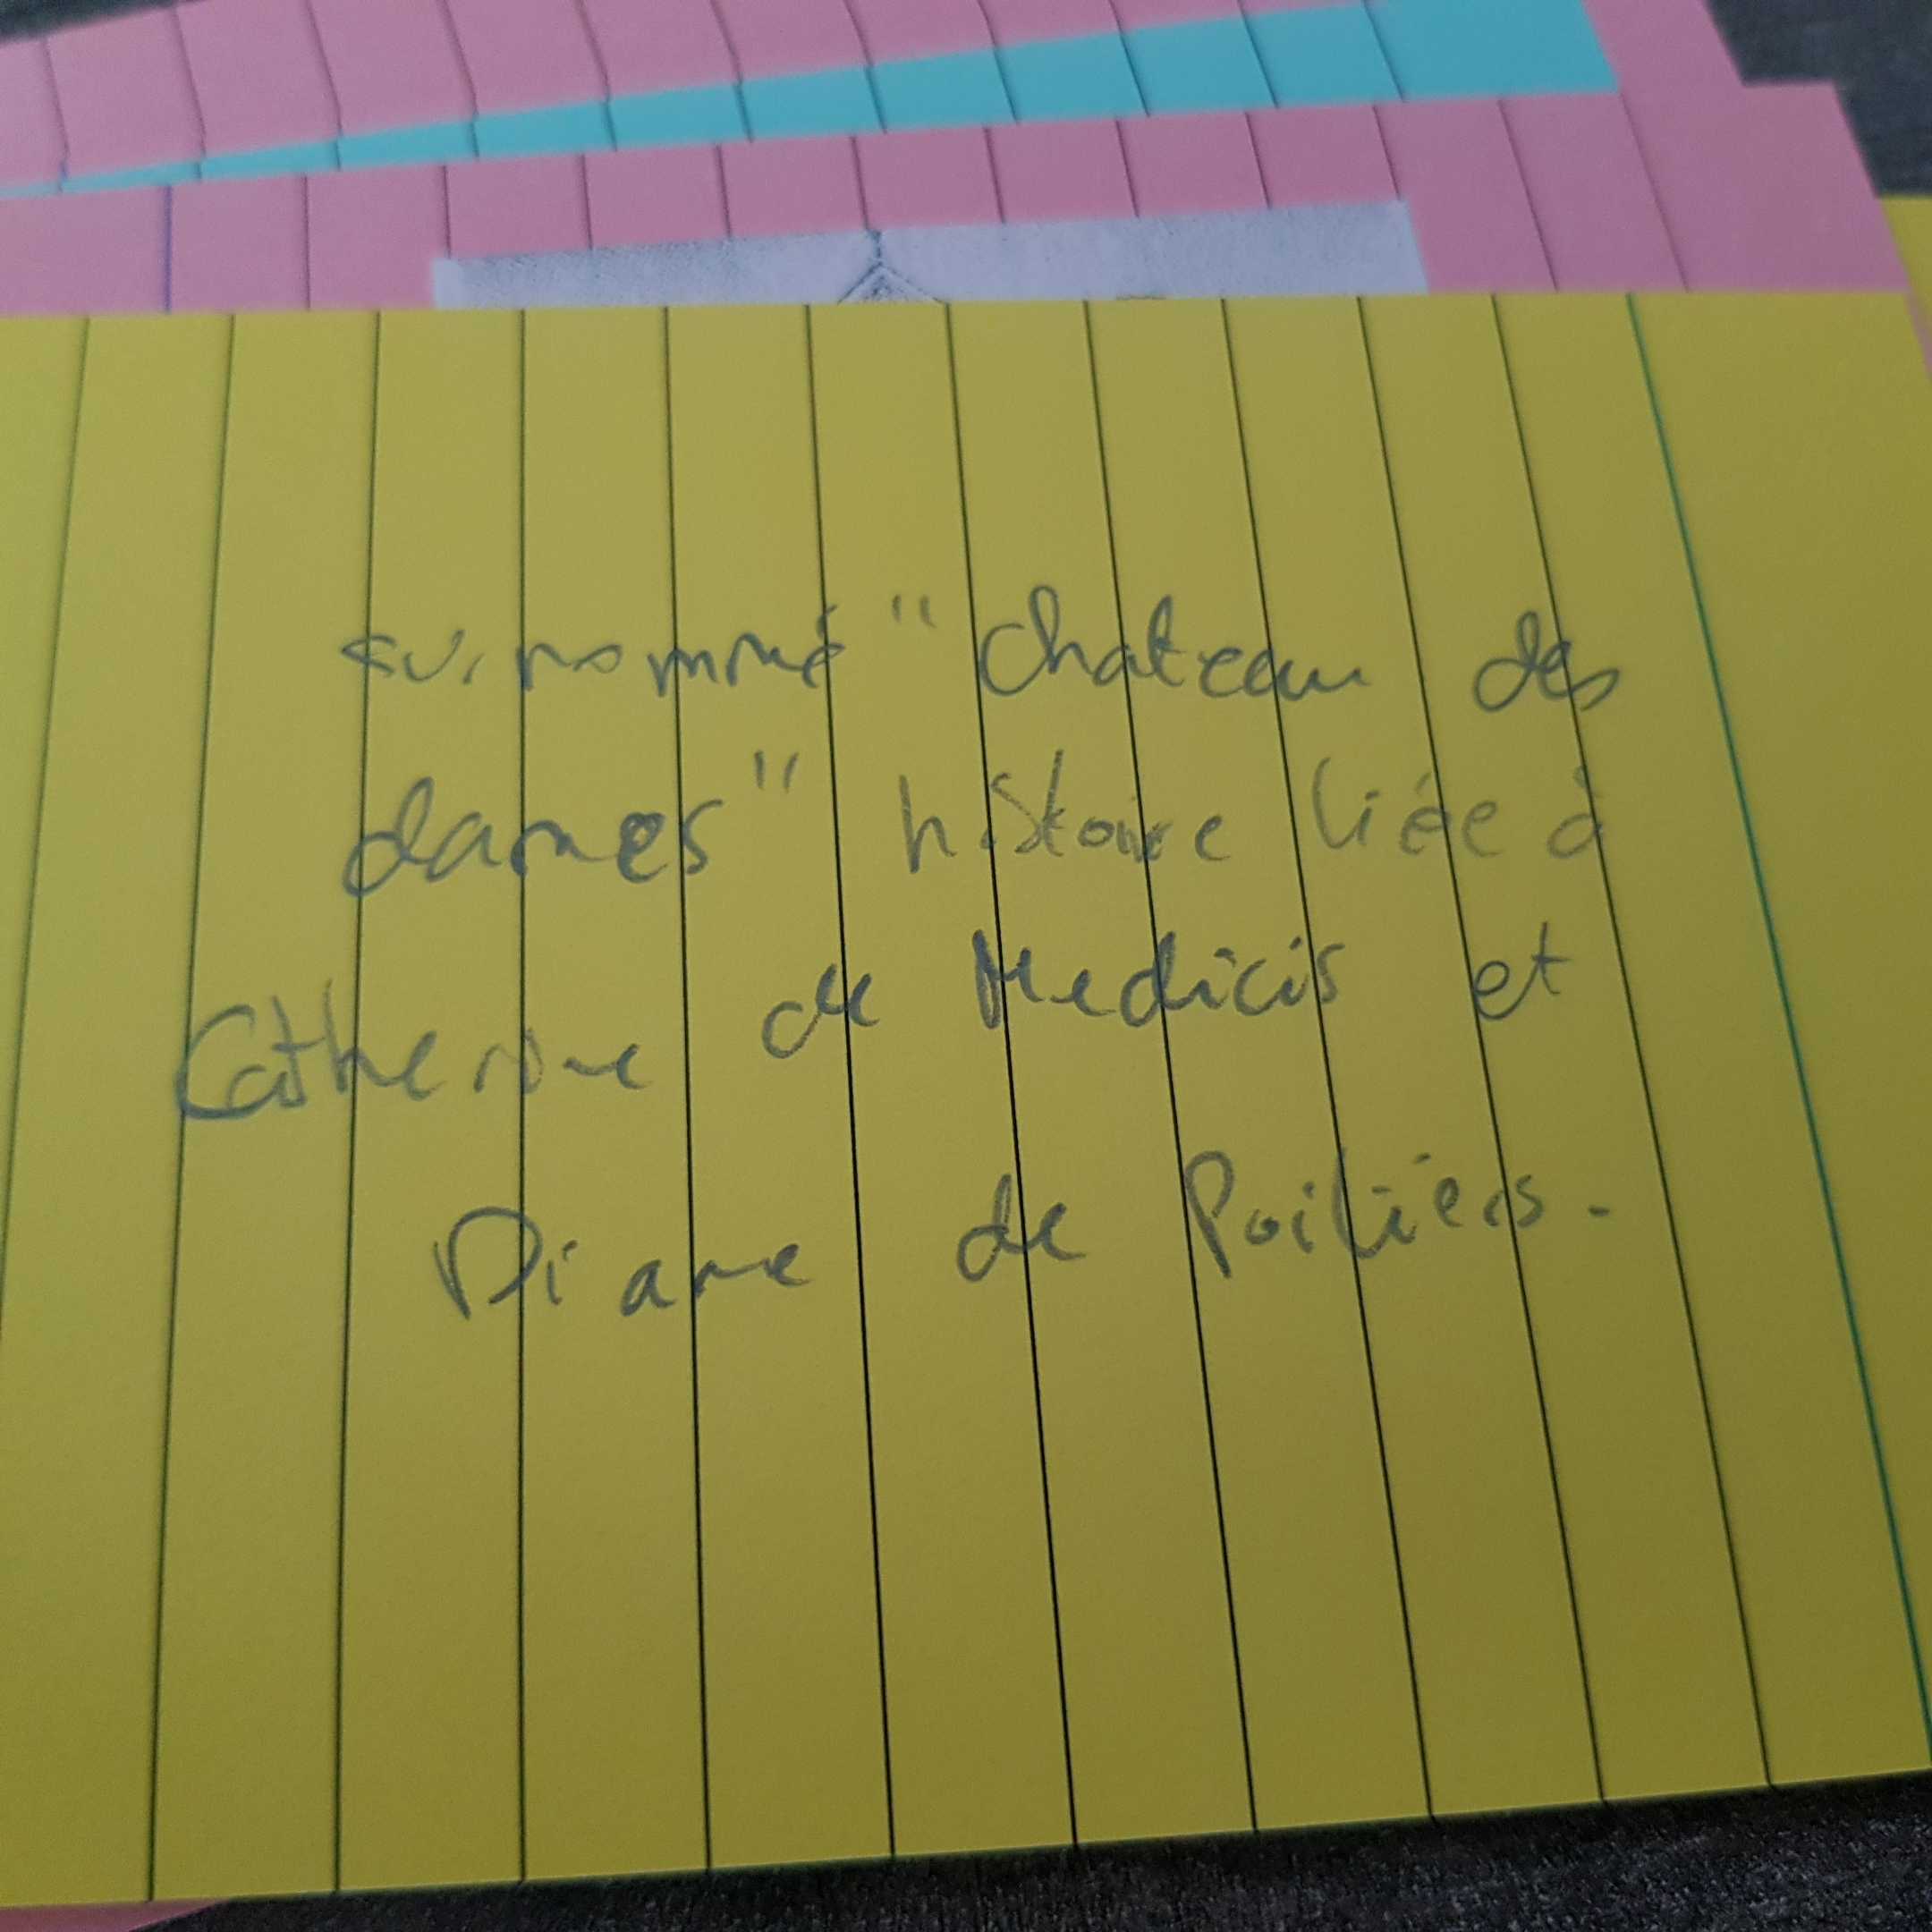 surnommé "chateau des
dames" histoire liée à
Catherine de Medicis et
Diane de Poitiers.